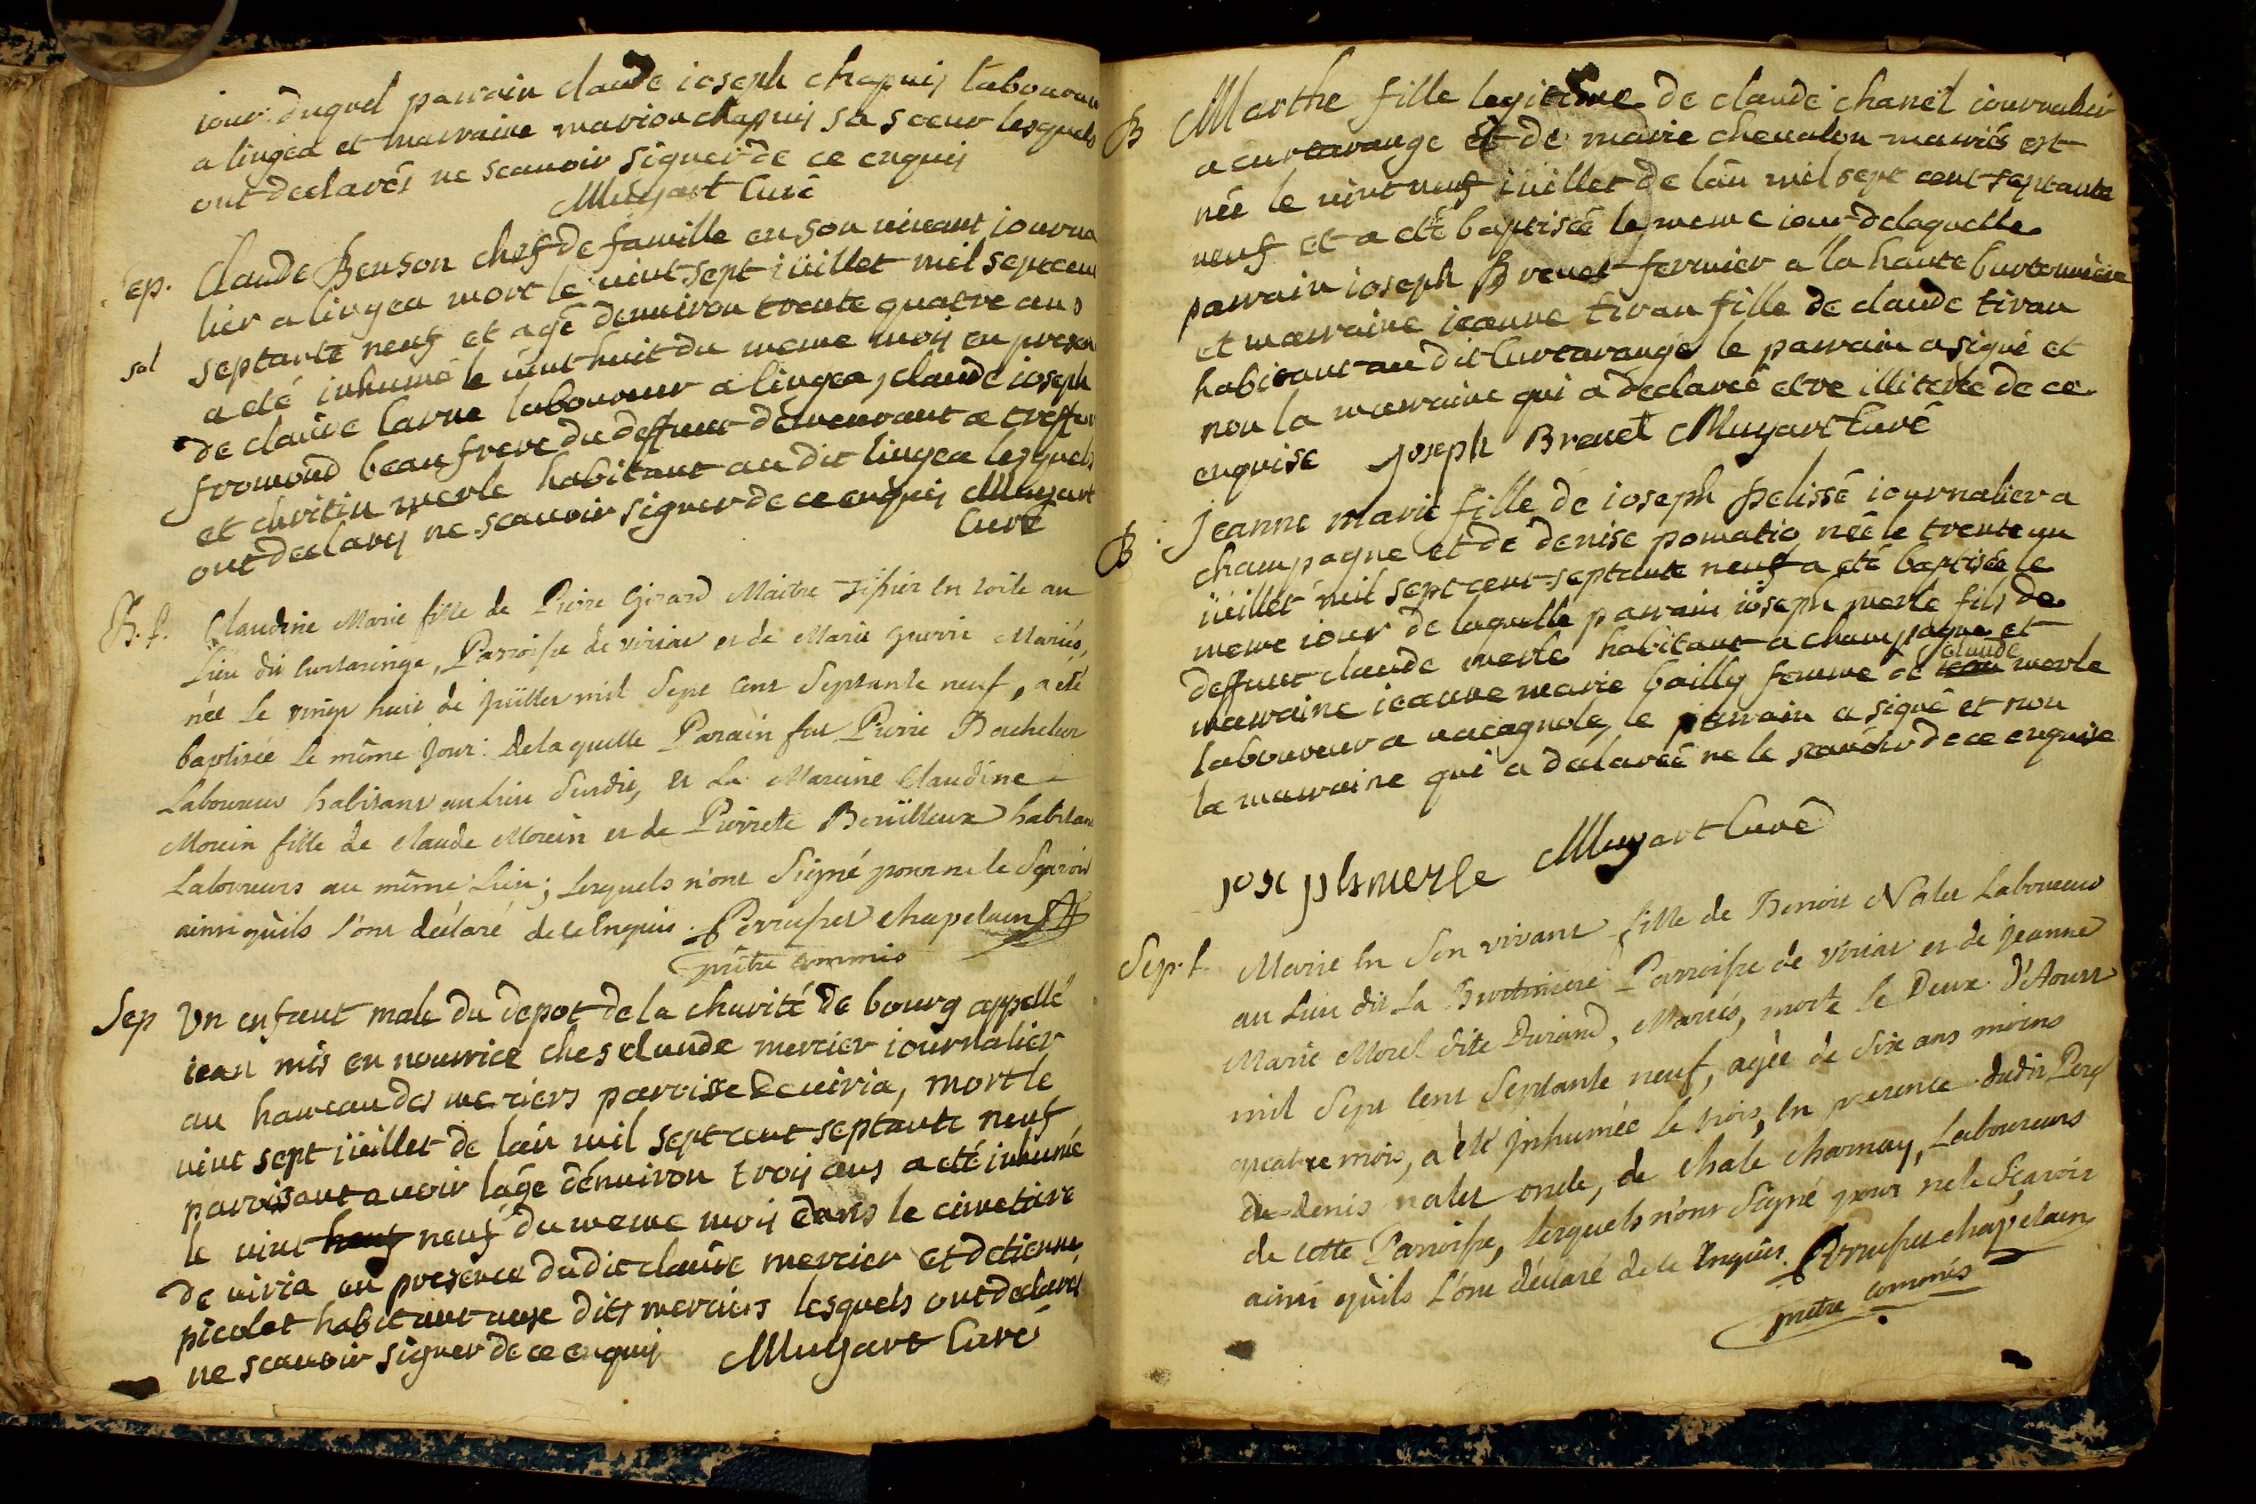 iour duquel parrain claude ioseph chapuij labourour
a lingea et marraine marion chapuij sa soeur lesquels
ont declarés ne scauoir signer de ce enquij
Muyart Curé
Sep. Claude Benson chef de famille en son viuant iourna
lier a lingea mort le vint sept iüillet mil septcent
sol septante neuf et agé denuiron trente quatre ans
a eté inhumé le vint huit du meme moij en presen
de claude larue laboureur a lingea, claude ioseph
fromond beaufrere du deffunt demeurant a treffor
et chritin merle habitant au dit lingea lesquels
ont declarij ne scauoir signer de ce enquij Muyart
Curé
B. f. Claudine Marie fille de Pierre Girard Maitre Tissier en toile au
Lieu dit Curtaringe, Parroisse de viriat et de Marie Guerrie Mariés,
née le vingt huit de juillet mil Sept Cent Septante neuf, a été
baptisée le même jour: de laquelle Parain fut Pierre Bacheleur
Laboureur habitant au Lieu Susdit, et La Maraine Claudine
Morein fille de Claude Morein et de Pierrete Boüilloux habitant
Laboureurs au même Lieu; Lesquels n'ont Signé pour ne le Sçavoir
ainsi qu'ils l'ont déclaré de ce Enquis. Perruset chapelain
prêtre commis
Sep Un enfant male du depot de la charité de bourg appellé
iean mis en nourrice ches claude mercier iournalier
au hameau des merciers paroisse de viria, mort le
vint sept iüillet de lán mil sept cent septante neuf
paroisant auoir láge dénuiron troij ans a eté inhumé
le vint neuf neuf du meme moij dans le cimetiere
de viria en presence dudit claude mercier et detienne
picolet habitant aux dits merciers lesquels ont declarés
ne scauoir signer de ce enquij Muyart Curé
B Marthe fille legitime de claude chanel iournalier
a curtarange et de marie cheualon mariés est
née le vint neuf iuillet de lán mil sept cent septante
neuf et a eté baptisée le meme iour de laquelle
parrain ioseph Brenet fermier a la haute burtonniere
et marraine ieanne tiran fille de claude tiran
habitant au dit Curtarange le parrain a signé et
non la marraine qui a declareé etre illiterée de ce
enquise Joseph Brenet Muyart Curé
B. Jeanne marie fille de ioseph pelissé iournalier a
champagne et de denise pomatio née le trente un
iüillet mil sept cent septante neuf a eté baptisée le
meme iour de laquelle parrain ioseph merle fils de
deffunt claude merle habitant a champagne et
marraine ieanne marie bailly femme de iean claude merle
laboureur a vacagnole, le parrain a signé et non
la marraine qui a declareé ne le scauoir de ce enquise
joseph merle Muyart Curé
Sep. f. Marie en Son vivant fille de Benoit Nalet Laboureur
au Lieu dit La Burtiniere Parroisse de viriat et de Jeanne
Marie Morel dite Durand, Mariés, morte le Deux d'Aoust
mil Sept Cent Septante neuf, agée de Six ans moins
quatre mois, a été Inhumée le trois, en presence dudit Pere
de denis nalet oncle, de Charle charnay, Laboureurs
de cette Parroisse, Lesquels n'ont Signé pour ne le Sçavoir
ainsi qu'ils l'ont déclaré de ce Enquis. Perruset chapelain
prêtre commis